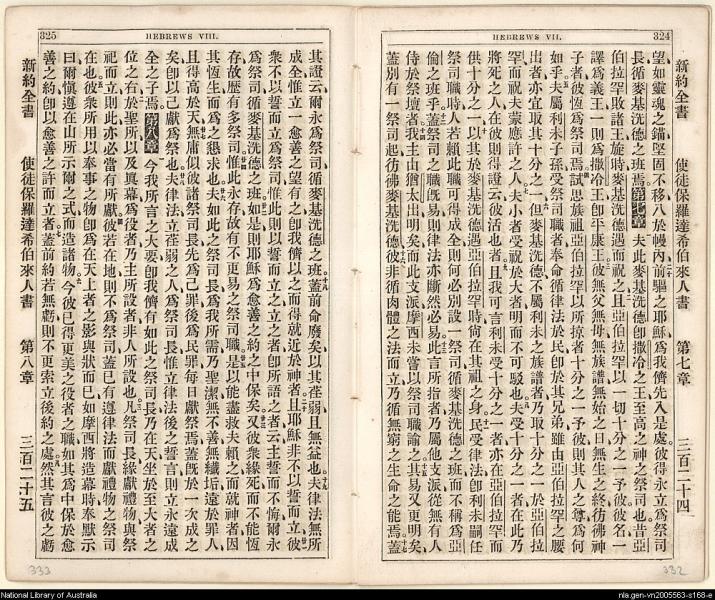 324
HEBREWS VII.
新約全書 使徒保羅達希伯來人書 第七章 三百二十四
望如靈魂之錨堅固不移八於幔內前驅之耶穌爲我儕先入是處彼得永立爲祭司
長循麥基洗德之班焉第七章 夫此麥基洗德卽撒冷之王至高之神之祭司也昔亞
伯拉罕敗諸王旋時麥基洗德遇而祝之且亞伯拉罕以一切十分之一予彼彼名一
譯爲義王一則爲撒冷王卽平康王彼無父無母無族譜無始之日無生之終彷彿神
子者彼恆爲祭司焉試思族祖亞伯拉罕以所掠者十分之一予彼則其人之尊爲何
如乎夫屬利未子孫受祭司職者奉命循律法於民卽於其兄弟雖由亞伯拉罕之腰
出者亦宜取其十分之一但麥基洗德不屬利未之族譜者乃取十分之一於亞伯拉
罕而祝夫蒙應許之人夫小者受祝於大者明而不可駁也夫受十分之一者在此乃
將死之人在彼則得證云彼活也者且我可言利未受十分之一者亦在亞伯拉罕而
供十分之一以其於麥基洗德遇亞伯拉罕時尙在其祖之身民受律法卽利未嗣任
祭司職時人若賴此職可得成全則何必別設一祭司循麥基洗德之班而不稱爲亞
倫之班乎蓋祭司之職旣易則律法亦斷然必易此言所指者乃屬他支派從無有人
侍於祭壇者我主由猶太出明矣而此支派摩西未嘗以祭司職諭之其易又更明矣
蓋別有一祭司起彷彿麥基洗德彼非循肉體之法而立乃循無窮之生命之能焉蓋
332
325
HEBREWS VIII.
其證云爾永爲祭司循麥基洗德之班蓋前命廢矣以其荏弱且無益也夫律法無所
成全惟立一愈善之望有之卽我儕以之而得就近於神者且耶穌非不以誓而立彼
衆不以誓而立爲祭司惟此則以誓而立之爲立之者卽所語之者云主誓而不悔爾永
爲祭司循麥基洗德之班如是則耶穌爲愈善之約之中保矣又彼衆緣死而不能恆
存故歷有多祭司惟此永存故有不更易之祭司職是以能盡救夫賴之而就神者因
其恆生而爲之懇求也夫如此之祭司長爲我所需乃聖潔無不善無纖垢遠於罪人
且得高於天無庸似彼諸祭司長先爲己罪後爲民罪每日獻祭焉蓋旣於一次成之
矣卽以己獻爲祭也夫律法立荏弱之人爲祭司長惟立律法後之誓言則立永遠成
全之子焉第八章 今我所言之大要卽我儕有如此之祭司長乃在天坐於至大者之
位之右於聖所以及眞幕爲役者乃主所設者非人所設也凡祭司長緣獻禮物與祭
祀而立則此亦必當有所獻彼若在地則不爲祭司蓋已有遵律法而獻禮物之祭司
在也彼衆所用以奉事之物卽爲在天上者之影與狀而已如摩西將造幕時奉默示
曰爾愼遵在山所示爾之式而造諸物今彼已得更美之役者之職如其爲中保於愈
善之約卽以愈善之許而立者蓋前約若無虧則不更索立後約之處然其言彼之虧
新約全書 使徒保羅達希伯來人書 第八章 三百二十五
333
National Library of Australia
nla.gen-vn2005563-s168-e